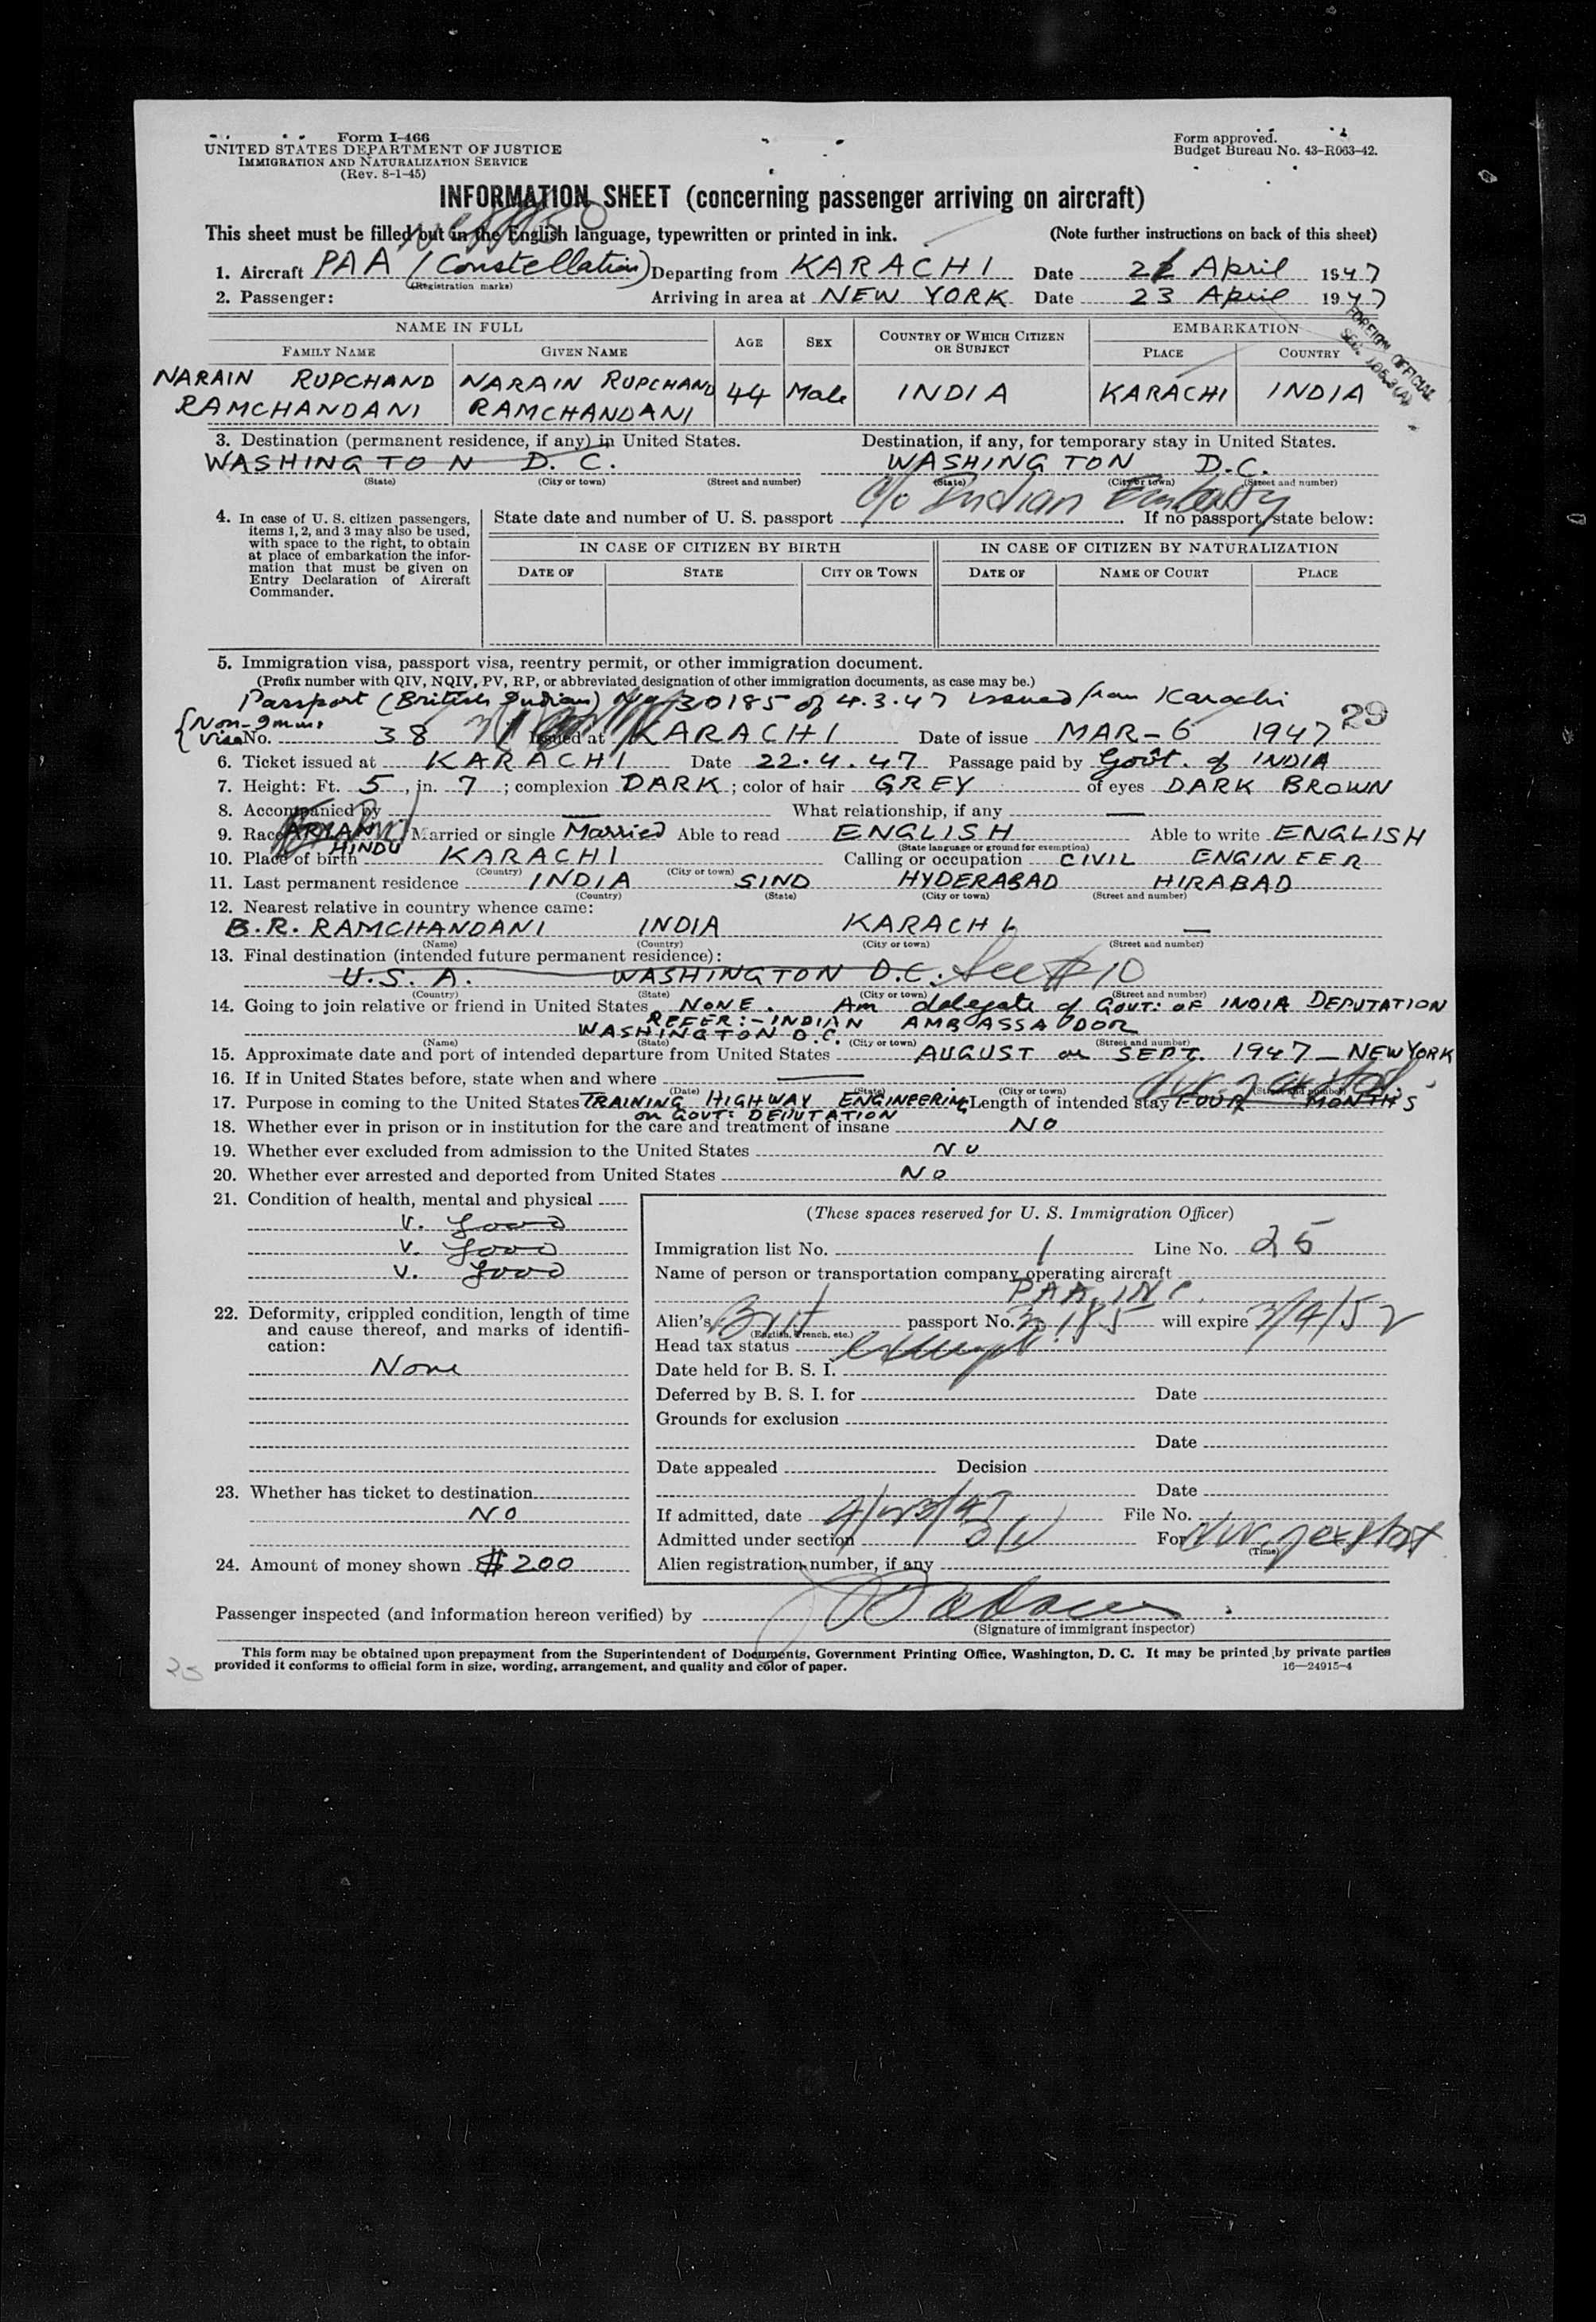 Form I-466
UNITED STATES DEPARTMENT OF JUSTICE
IMMIGRATION AND NATURALIZATION SERVICE
(Rev. 8-1-45)
Form approved.
Budget Bureau No. 43-R063-42.
INFORMATION SHEET (concerning passenger arriving on aircraft)
This sheet must be filled out in the English language, typewritten or printed in ink. (Note further instructions on back of this sheet)
1. Aircraft PAA (Constellation) Departing from KARACHI Date April 1947
(Registration marks)
2. Passenger: Arriving in area at NEW YORK Date 23 April 1947
FOREIGN OFFICIAL
NAME IN FULL AGE SEX COUNTRY OF WHICH CITIZEN OR SUBJECT EMBARKATION
FAMILY NAME GIVEN NAME PLACE COUNTRY
NARAIN RUPCHAND NARAIN RUPCHAND 44 Male INDIA KARACHI INDIA
RAMCHANDANI RAMCHANDANI
3. Destination (permanent residence, if any) in United States. Destination, if any, for temporary stay in United States.
WASHINGTON D. C. WASHINGTON D.C.
(State) (City or town) (Street and number) (State) (City or town) (Street and number)
c/o Indian Embassy
4. In case of U. S. citizen passengers, items 1, 2, and 3 may also be used, with space to the right, to obtain at place of embarkation the information that must be given on Entry Declaration of Aircraft Commander.
State date and number of U. S. passport . If no passport, state below:
IN CASE OF CITIZEN BY BIRTH IN CASE OF CITIZEN BY NATURALIZATION
DATE OF STATE CITY OR TOWN DATE OF NAME OF COURT PLACE
5. Immigration visa, passport visa, reentry permit, or other immigration document.
(Prefix number with QIV, NQIV, PV, RP, or abbreviated designation of other immigration documents, as case may be.)
Passport (British Indian) No 30185 of 4.3.47 issued from Karachi
29
{Non-Imm:
Visa No. 38 Issued at KARACHI Date of issue MAR-6 1947
6. Ticket issued at KARACHI Date 22.4.47 Passage paid by Govt. of INDIA
7. Height: Ft. 5, in. 7; complexion DARK; color of hair GREY of eyes DARK BROWN
8. Accompanied by — What relationship, if any —
9. Race ARIAN Married or single Married Able to read ENGLISH Able to write ENGLISH
HINDU (State language or ground for exemption)
10. Place of birth KARACHI Calling or occupation CIVIL ENGINEER
(Country) (City or town)
11. Last permanent residence INDIA SIND HYDERABAD HIRABAD
(Country) (State) (City or town) (Street and number)
12. Nearest relative in country whence came:
B.R. RAMCHANDANI INDIA KARACHI —
(Name) (Country) (City or town) (Street and number)
13. Final destination (intended future permanent residence):
U.S.A. WASHINGTON D.C. See # 10
(Country) (State) (City or town) (Street and number)
14. Going to join relative or friend in United States NONE. Am delegate of GOVT: OF INDIA DEPUTATION
REFER:- INDIAN AMBASSADOR
WASHINGTON D.C.
(Name) (State) (City or town) (Street and number)
15. Approximate date and port of intended departure from United States AUGUST or SEPT. 1947 — NEW YORK
16. If in United States before, state when and where —
(Date) (State) (City or town) (Street and number)
17. Purpose in coming to the United States TRAINING HIGHWAY ENGINEERING Length of intended stay FOUR MONTHS
on GOVT: DEPUTATION
18. Whether ever in prison or in institution for the care and treatment of insane NO
19. Whether ever excluded from admission to the United States NO
20. Whether ever arrested and deported from United States NO
21. Condition of health, mental and physical
V. Good
V. Good
V. Good
22. Deformity, crippled condition, length of time and cause thereof, and marks of identification:
None
23. Whether has ticket to destination
NO
24. Amount of money shown $200
(These spaces reserved for U. S. Immigration Officer)
Immigration list No. 1 Line No. 25
Name of person or transportation company operating aircraft
PAA, INC.
Alien's Brit passport No. 30185 will expire 3/4/52
(English, French, etc.)
Head tax status exempt
Date held for B. S. I.
Deferred by B. S. I. for Date
Grounds for exclusion
Date
Date appealed Decision
Date
If admitted, date 4/23/47 File No.
Admitted under section For
(Time)
Alien registration number, if any
Passenger inspected (and information hereon verified) by
(Signature of immigrant inspector)
This form may be obtained upon prepayment from the Superintendent of Documents, Government Printing Office, Washington, D. C. It may be printed by private parties
provided it conforms to official form in size, wording, arrangement, and quality and color of paper. 16—24915-4
25